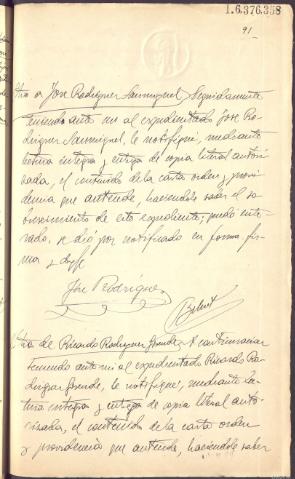 1.6.376.358
91-
Otra a José Rodríguez Sanmiguel) Seguidamente
teniendo ante mí al expedientado José Ro-
dríguez Sanmiguel, le notifiqué, mediante
lectura íntegra y entrega de copia literal autori-
zada, el contenido de la carta orden y provi-
dencia que antecede, haciéndole saber el so-
breseimiento de este expediente; quedó ente-
rado, se dió por notificado en forma fir-
ma y doy fe
José Rodríguez
Otra de Ricardo Rodríguez A continuación
teniendo ante mí al expedientado Ricardo Ro-
dríguez, le notifiqué, mediante lec-
tura íntegra y entrega de copia literal auto-
rizada, el contenido de la carta orden
y providencia que antecede, haciéndole saber